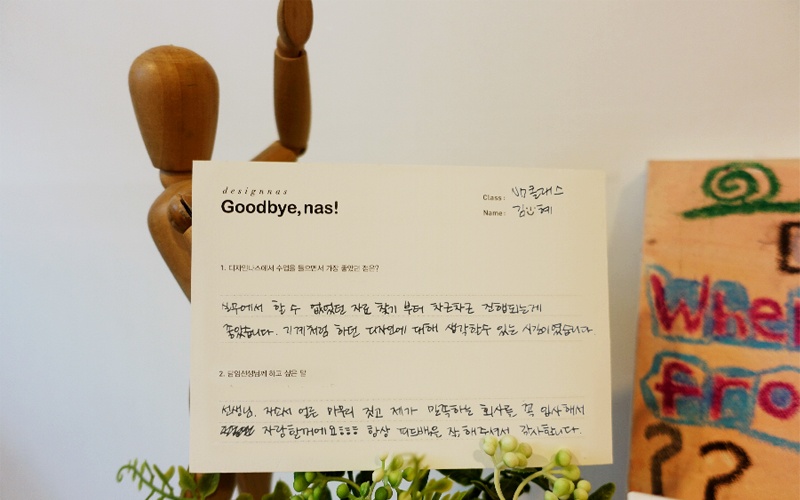 designnas
Goodbye, nas!
Class: VM클래스
Name: 김 혜
1. 디자인나스에서 수업을 들으면서 가장 좋았던 점은?
실무에서 할 수 없었던 자료 찾기 부터 차근차근 진행되는게
좋았습니다. 기계처럼 하던 디자인에 대해 생각할수 있는 시간이였습니다
2. 담임선생님께 하고 싶은 말
선생님. 자소서 얼른 마무리 짓고 제가 만족하는 회사를 꼭 입사해서
자랑할꺼에요!!! 항상 피드백을 잘 해주셔서 감사합니다.
When
fro
??